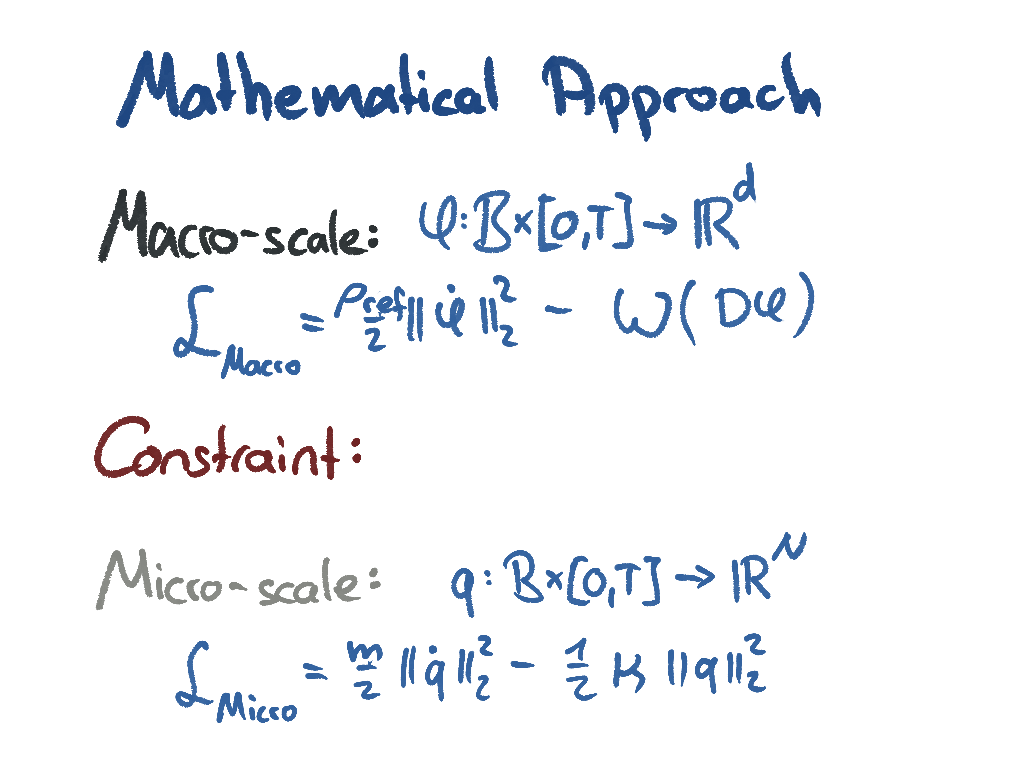 Mathematical Approach
Macro-scale: φ: B×[0,T] → ℝ^d
ℒ_Macro = ρ_ref/2 ‖φ̇‖₂² - W(Dφ)
Constraint:
Micro-scale: q: B×[0,T] → ℝ^N
ℒ_Micro = m/2 ‖q̇‖₂² - 1/2 κ ‖q‖₂²